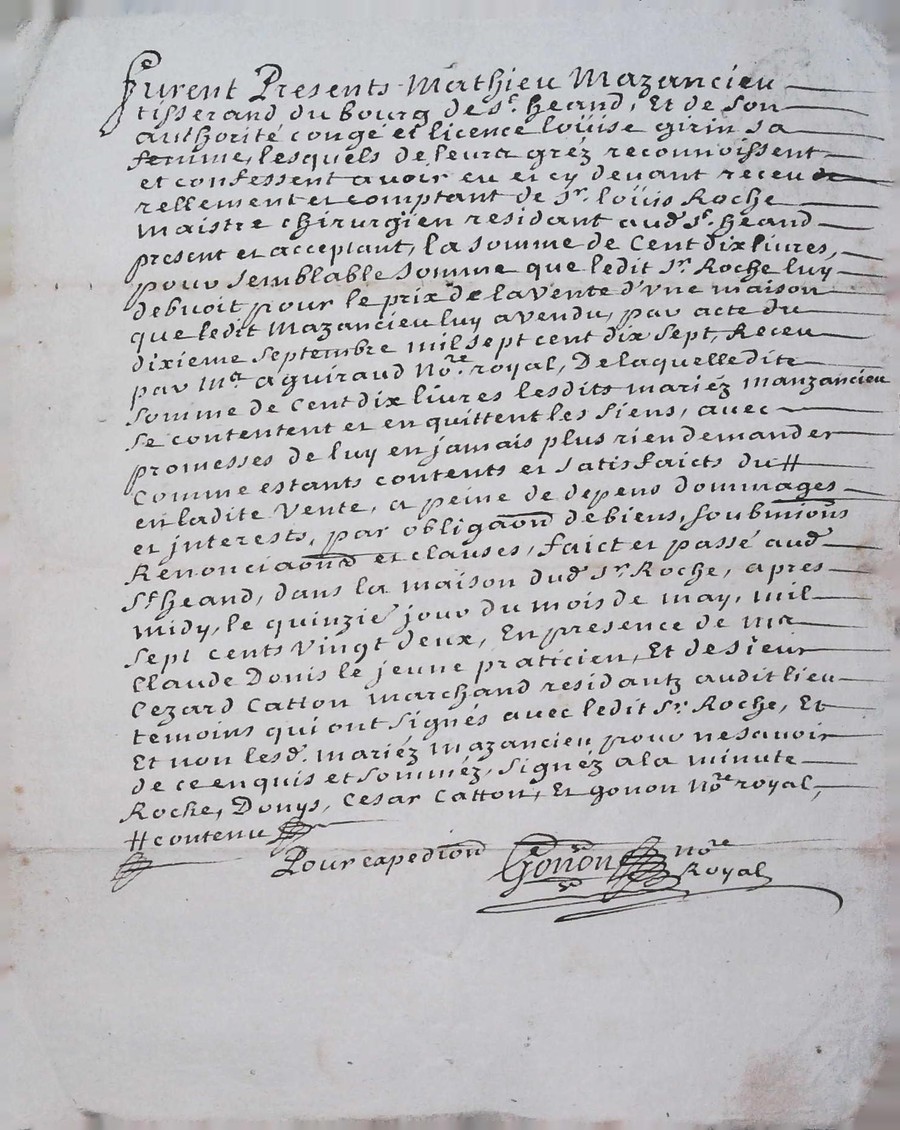 Furent Presents Mathieu Mazancieu
tisserand du bourg de St. heand, Et de son
authorité congé et licence loüise girin sa
femme, lesquels de leurs gréz reconnoissent
et confessent avoir eu ei cy devant receu
rellement et comptant de Sr. loüis Roche
maistre chirurgien residant aud St. heand
present et acceptant, la somme de Cent dix livres,
pour semblable somme que ledit Sr. Roche luy
debuoit pour le prix de la vente d'vne maison
que ledit Mazancieu luy a vendu, par acte du
dixieme septembre mil sept cent dix sept, Receu
par Mr aguiraud Nore. royal, De laquelle dite
somme de Cent dix livres lesdits mariéz manzancieu
se contentent et en quittent les siens, avec
promesses de luy en jamais plus rien demander
Comme estants contents et satisfaicts du #
en ladite vente, a peine de depens dommages
et interests, par obligaon de biens, soubmions
Renonciaons et clauses, faict et passé aud
St. heand, dans la maison dud Sr. Roche, apres
midy, le quinzie jour du mois de may, mil
sept cents vingt deux, En presence de me
Claude Donis le jeune praticien, Et de sieur
Cezard Catton marchand residantz audit lieu
temoins qui ont signés avec ledit Sr. Roche, Et
Et non lesd. mariéz mazancieu pour ne savoir
de ce enquis et somméz, signéz a la minute
Roche, Donys, Cesar Catton, Et gonon Nore royal,
# contenu
Pour expedion Gonon nore
Royal